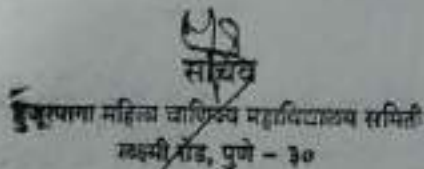 सचिव
हुजूरपागा महिला वाणिज्य महाविद्यालय समिती
लक्ष्मी रोड, पुणे - ३०